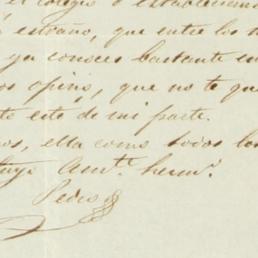 el colegio o establecimi
estraño, que entre los
ya conoces bastante
os opino, que no te qu
to esto de mi parte.
os, ella como todos los
tuyo Amte. hermo.
Pedro